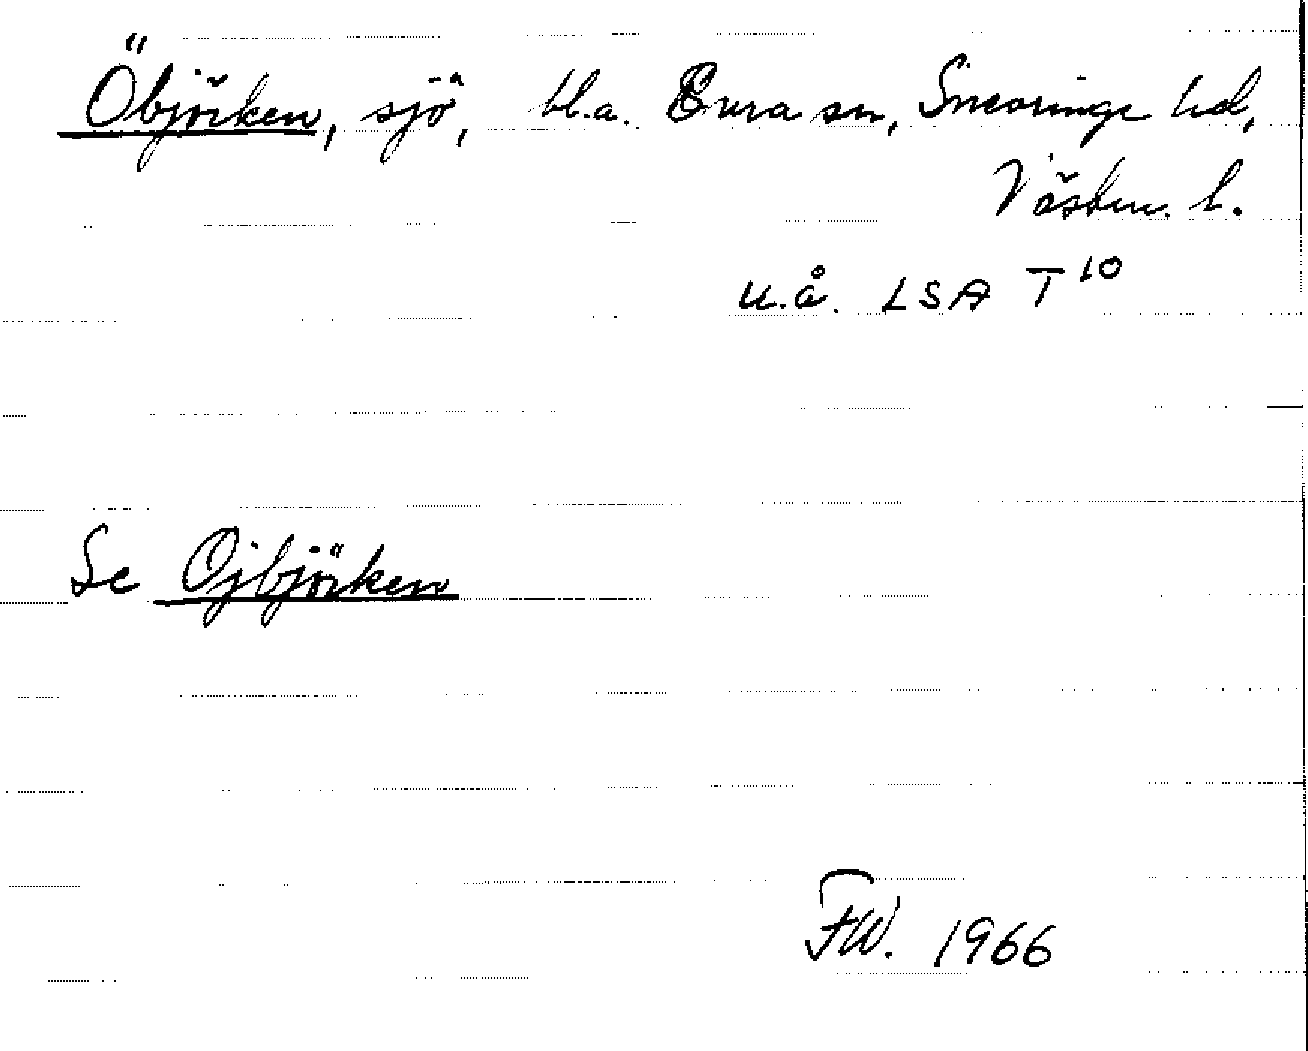 Öbjörken, sjö, bl.a. Enra sn, Snevringe hd,
Västm. l.
u.å. LSA T 10
Se Ojbjörken
FW. 1966